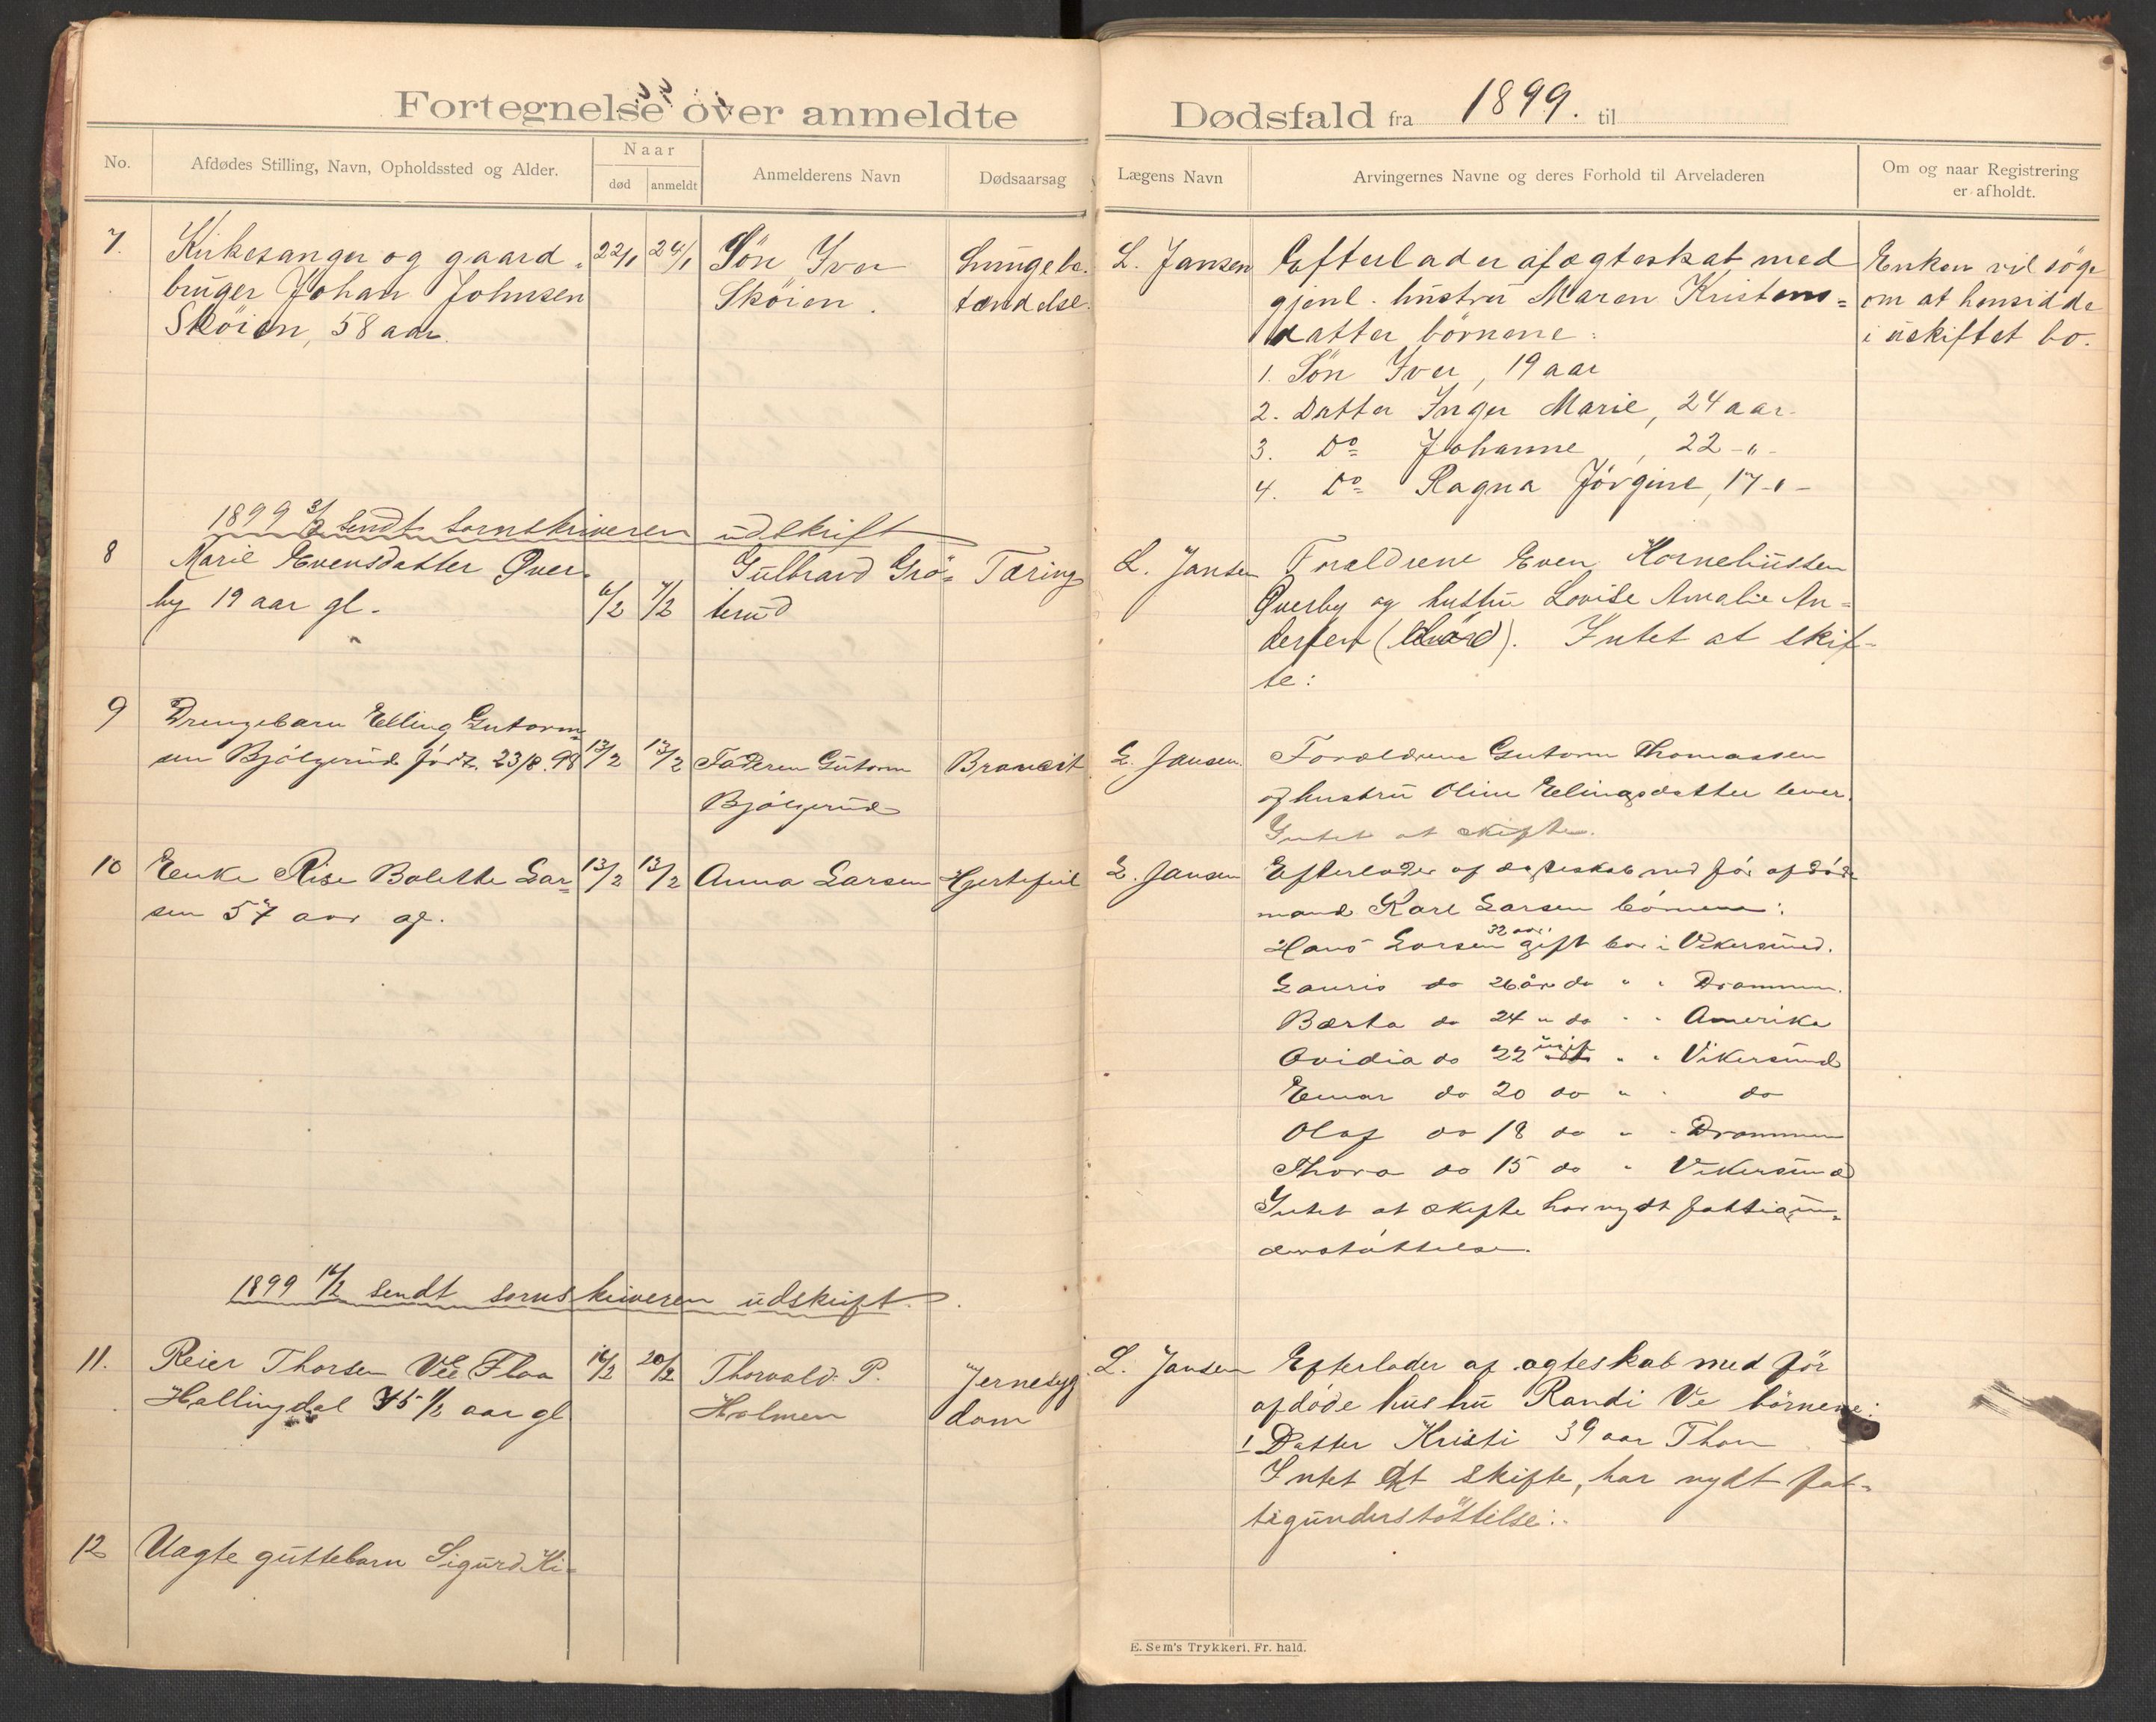 Fortegnelse over anmeldte Dødsfald fra 1899. til
No.
Afdødes Stilling, Navn, Opholdssted og Alder.
Naar
død
anmeldt
Anmelderens Navn
Dødsaarsag
Lægens Navn
Arvingernes Navne og deres Forhold til Arveladeren
Om og naar Registrering
er afholdt.
7.
Kirkesanger og gaard-
bruger Johan Johnsen
Sköien, 58 aar.
22/1
24/1
Sön Iver
Sköien.
Lungebe-
tændelse.
L. Jansen
Efterlader af ægteskab med
gjenl. hustru Maren Kristens=
datter börnene:
1. Sön Iver, 19 aar
2. Datter Inger Marie, 24 aar-
3. Do Johanne, 22 -"-
4. Do Ragna Jörgine, 17 -"-
Enken vil söge
om at hensidde
i uskiftet bo.
1899 3/2 sendt sornskriveren udskrift
8
Marie Evensdatter Över-
by 19 aar gl.
6/2
7/2
Gulbrand Grö=
terud
Tæring
L. Jansen
Foreldrene Even Korneliussen
Överby og hustru Lovise Amalie An=
dersen. Intet at skif-
te:
9
Drengebarn Elling Gutorm=
sen Bjölgerud född. 23/8. 98
13/2
13/2
Faderen Gutorm
Bjölgerud
Broncit
L. Jansen.
Forældrene Gutorm Thomassen
og hustru Oline Ellingsdatter lever.
Intet at skifte.
10
Enke Rise Bolette Lar=
sen 57 aar gl.
13/2
13/2
Anna Larsen
Hjertefeil
L. Jansen
Efterlader af ægteskab med för afdöde
mand Karl Larsen börnene:
Hans Larsen 32 aar gift bor i Vikersund.
Lauris do 26 år do " " Drammen.
Bærta do 24 " do " " Amerika
Ovidia do 22 ugift " " Vikersund
Einar do 20 do " " do
Olaf do 18 do " " Drammen
Thora do 15 do " Vikersund
Intet at skifte har nydt fattigun=
derstöttelse.
1899 16/2 sendt sornskriveren udskrift.
11.
Reier Thorsen Vee Flaa
Hallingdal 75 1/2 aar gl
16/2
20/2
Thorvald P.
Holmen
Jernesyg
dom
L. Jansen
Efterlader af ægteskab med för
afdöde hustru Randi Ve börnene:
1 Datter Kristi 39 aar Thon
Intet at skifte, har nydt fat=
tigunderstöttelse:.
12
Uægte guttebarn Sigurd Ki=
E. Sem's Trykkeri, Fr. hald.